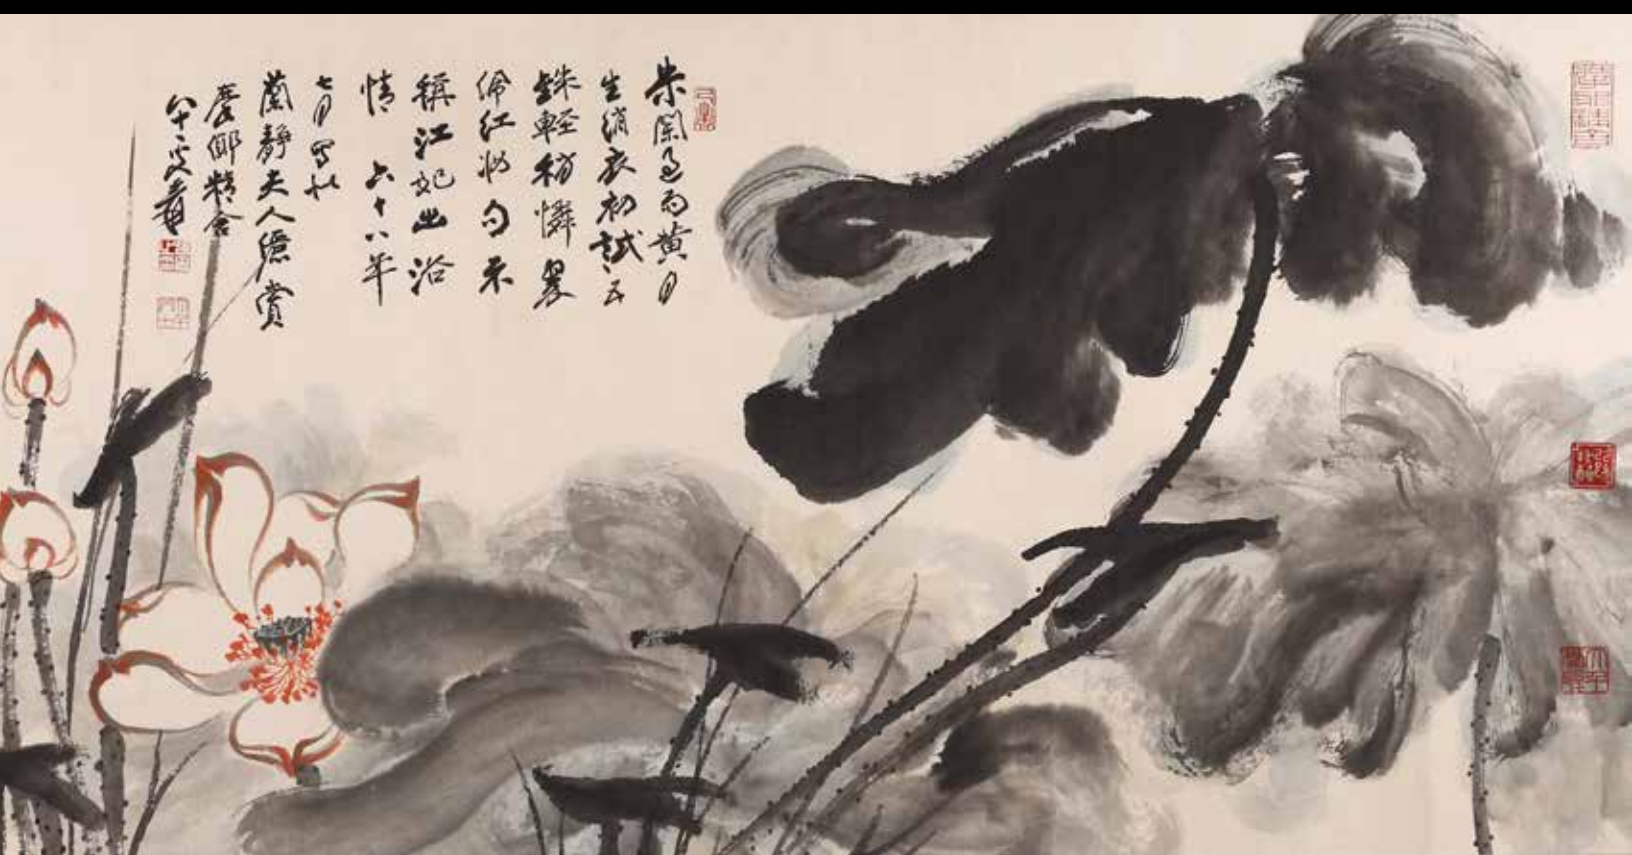 朱闌過雨黃月
生綃衣初試五
銖輕稍憐翠
佩紅妝句不
稱江妃出浴
情 六十八年
七月寫似
蘭靜夫人儷賞
摩耶精舍
八十一叟爰